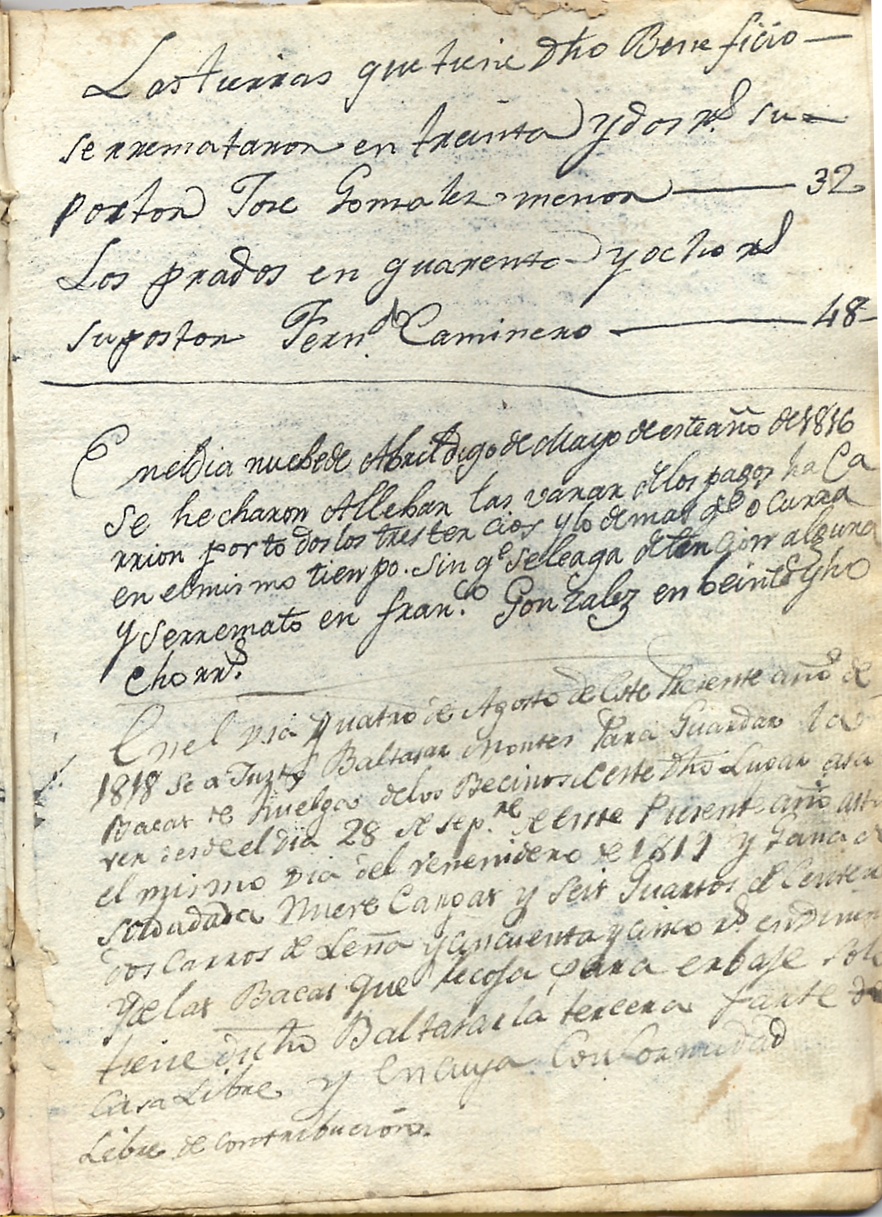 Las tierras que tiene dho Beneficio
serremataron en treinta y dos rs su
postor Jose Gomalez menor 32
Los prados en quarenta y ocho rs
supostor Ferndo Caminero 48
En el Dia nuebe de Abril digo de Mayo de este año de 1816
Se hecharon Alleban las varas de los pagos ha Ca
rrion por todos los tres tercios y lo demas qe ocurra
en el mismo tiempo. Sin qe se leaga detencion alguna
y serremato en franco. Gonzalez en beinte y ho
cho rrs.
En el Dia quatro de Agosto de Este Presente año de
1818 se a Justo Baltasar Montes Para Guardar las
Bacas de huelga de los Becinos de este dho Lugar asa
ver desde el dia 28 de sepre de este Presente año asta
el mismo Dia del venenidero de 1819 y Gana de
soldada Nueve Cargas y Seis Quartos de Centen
dos Carros de Leña y cincuenta y cinco rs en diner
y de las Bacas que recoja para erbaje sole
tiene dicho Baltasar la tercera parte de
Casa Libre y en cuya Conformidad
Libre de contribucion.